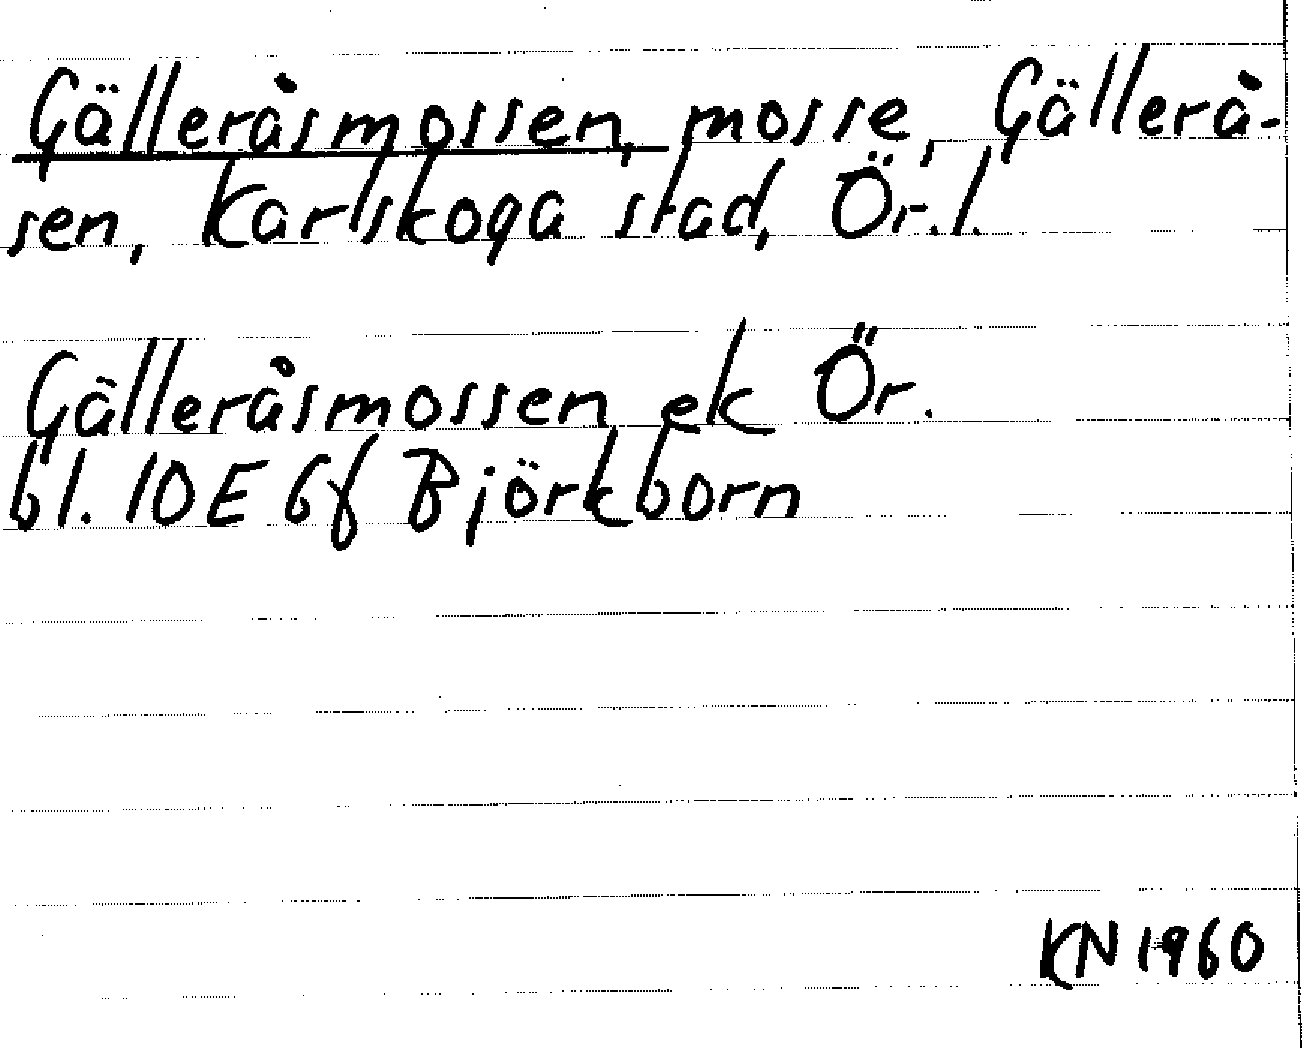 Gälleråsmossen, mosse, Gällerå-
sen, Karlskoga stad, Ör.l.
Gälleråsmossen ek Ör.
bl. 10E 6f Björkborn
KN 1960